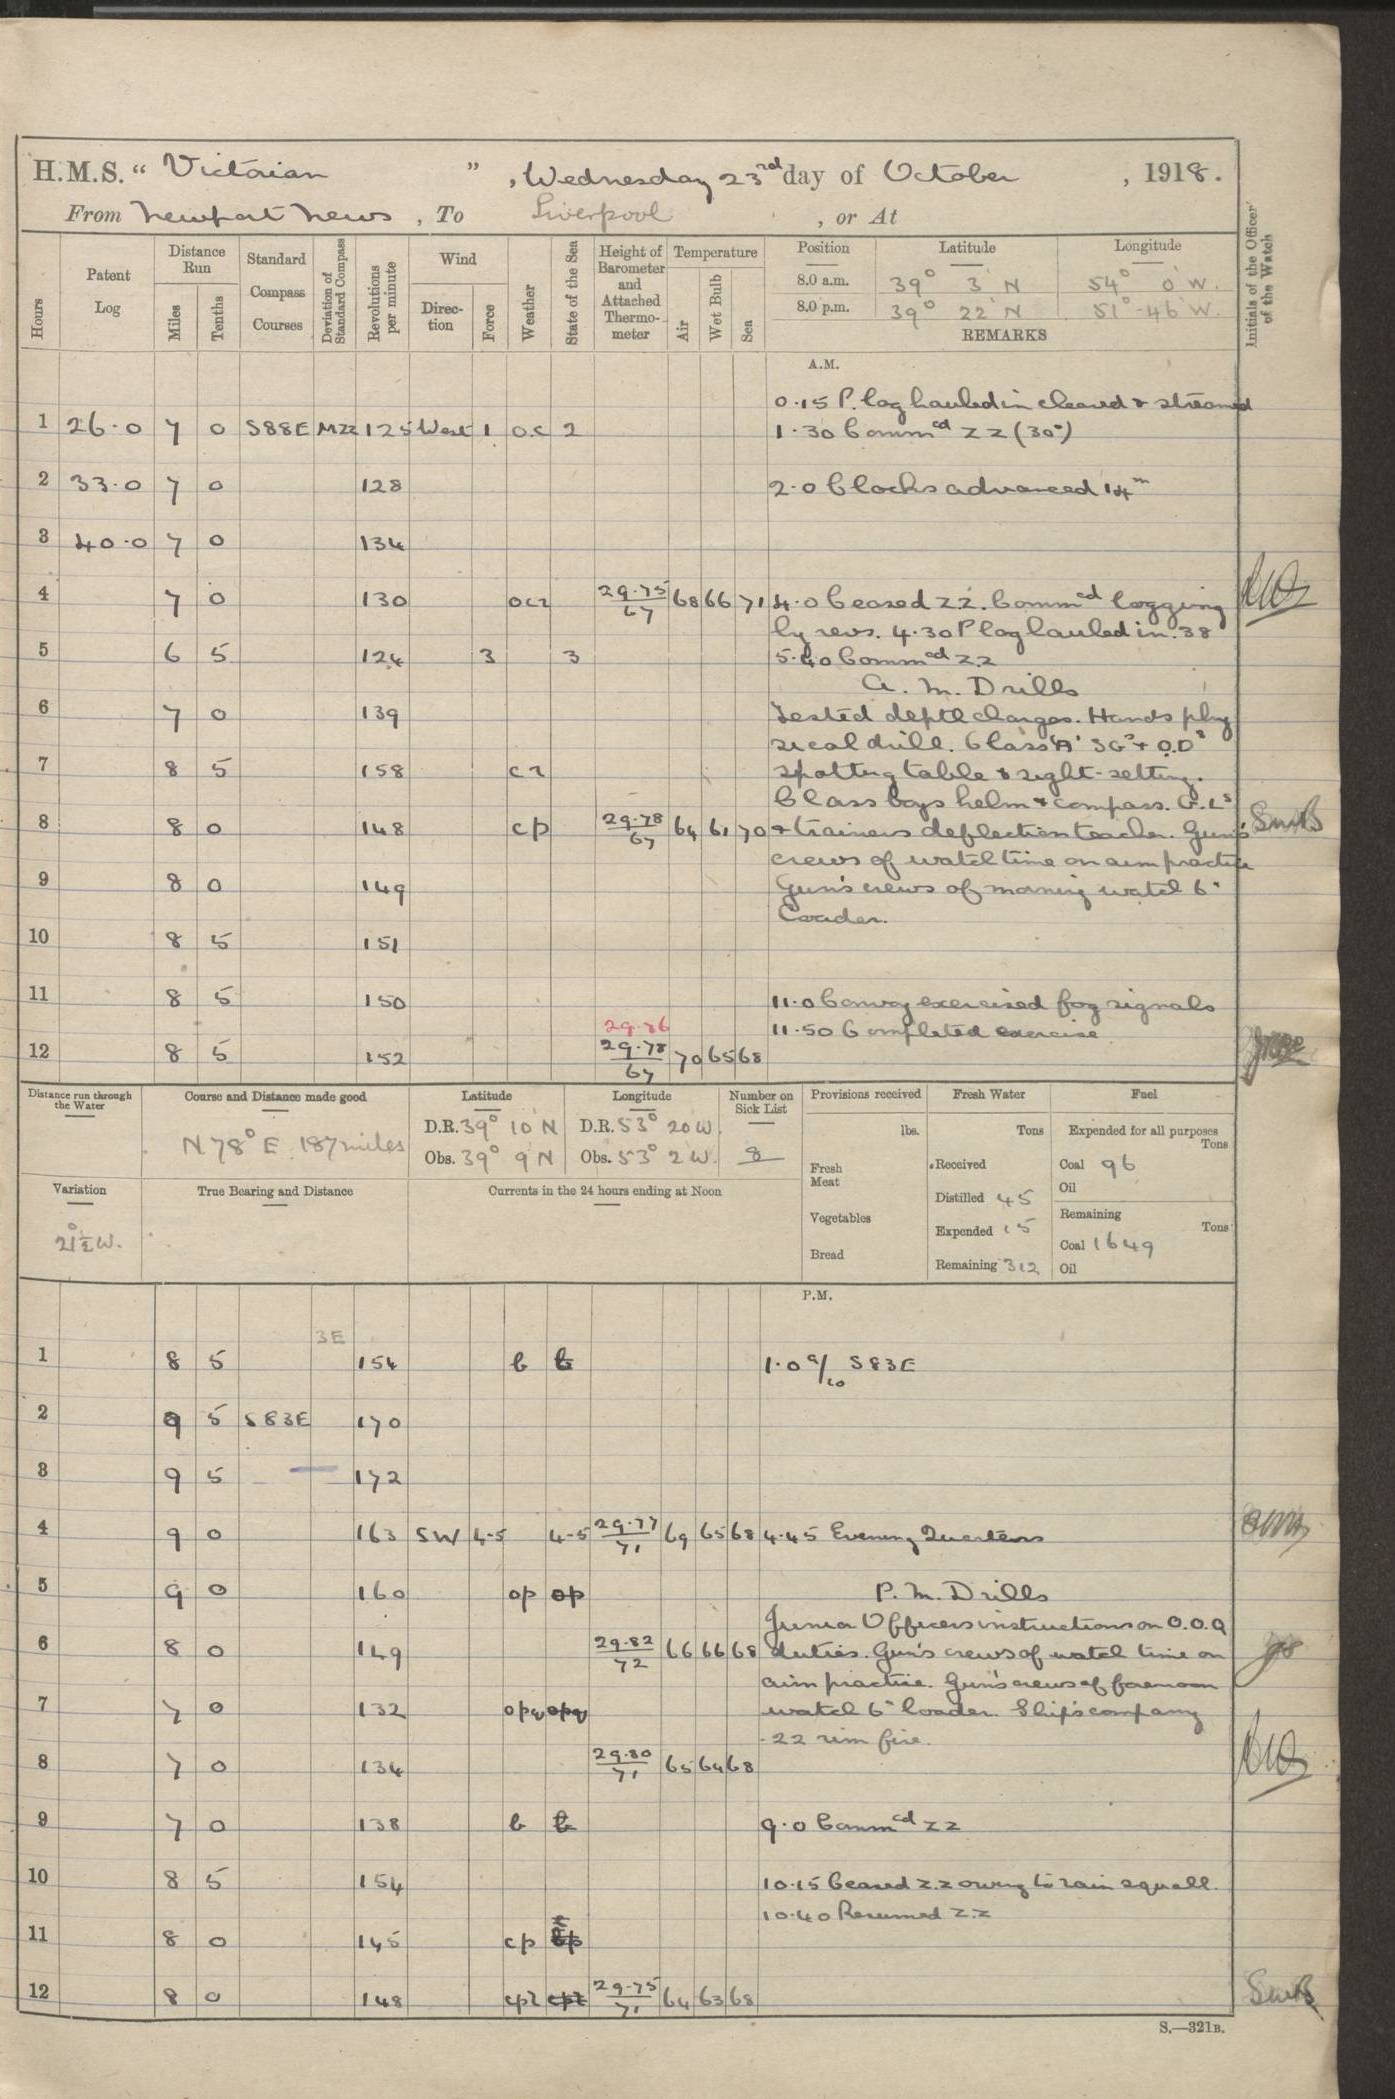 H.M.S. “ Victorian ” , Wednesday 23rd day of October , 1918.
From Newport News , To Liverpool , or At
Hours Patent Log Distance Run Miles Tenths Standard Compass Courses Deviation of Standard Compass Revolutions per minute Wind Direction Force Weather State of the Sea Height of Barometer and Attached Thermometer Temperature Air Wet Bulb Sea Position Latitude Longitude Initials of the Officer of the Watch
8.0 a.m. 39° 3' N 54° 0' W.
8.0 p.m. 39° 22' N 51°-46' W.
REMARKS
A.M.
0.15 P. log hauled in cleared & streamed
1 26.0 7 0 S88E M22 125 West 1 o.c 2 1.30 Commcd ZZ (30°)
2 33.0 7 0 128 2.0 Clocks advanced 14m
3 40.0 7 0 134
4 7 0 130 ocr 29.75/67 68 66 71 4.0 Ceased ZZ. Commcd logging
by revs. 4.30 P log hauled in. 38
5 6 5 124 3 3 5.40 Commcd ZZ
A. M. Drills
6 7 0 139 Tested depth charges. Hands phy
sical drill. Class 'A' SGs & O.Ds
7 8 5 158 cr spotting table & sight-setting.
Class boys helm & compass. G.Ls
8 8 0 148 cp 29.78/67 64 61 70 & trainers deflection teacher. Gun's
crews of watch time on aim practice
9 8 0 149 Gun's crews of morning watch 6"
Loader.
10 8 5 151
11 8 5 150 11.0 Convoy exercised fog signals
29.86 11.50 Completed exercise
12 8 5 152 29.78/67 70 65 68
Distance run through the Water Course and Distance made good Latitude Longitude Number on Sick List Provisions received Fresh Water Fuel
N 78° E 187 miles D.R. 39° 10' N D.R. 53° 20' W. lbs. Tons Expended for all purposes Tons
Obs. 39° 9' N Obs. 53° 2' W. 8 Fresh Meat Received Coal 96
Oil
Variation True Bearing and Distance Currents in the 24 hours ending at Noon Distilled 45
21½° W. Vegetables Expended 15 Remaining Tons
Coal 1649
Bread Remaining 312 Oil
P.M.
3E
1 8 5 154 b b 1.0 a/co S83E
2 9 5 S83E 170
3 9 5 172
4 9 0 163 SW 4-5 4-5 29.77/71 69 65 68 4.45 Evening Quarters
5 9 0 160 op op P. M. Drills
Junior Officers instructions on O.O.Q
6 8 0 149 29.82/72 66 66 68 duties. Gun's crews of watch time on
aim practice. Gun's crews of forenoon
7 7 0 132 opq opq watch 6" loader. Ship's company
.22 rim fire.
8 7 0 134 29.80/71 65 64 68
9 7 0 138 b b 9.0 Commcd ZZ
10 8 5 154 10.15 Ceased Z.Z owing to rain squall.
10.40 Resumed Z.Z
11 8 0 145 cp
12 8 0 148 cpr cpr 29.75/71 64 63 68 SmB
S.—321B.